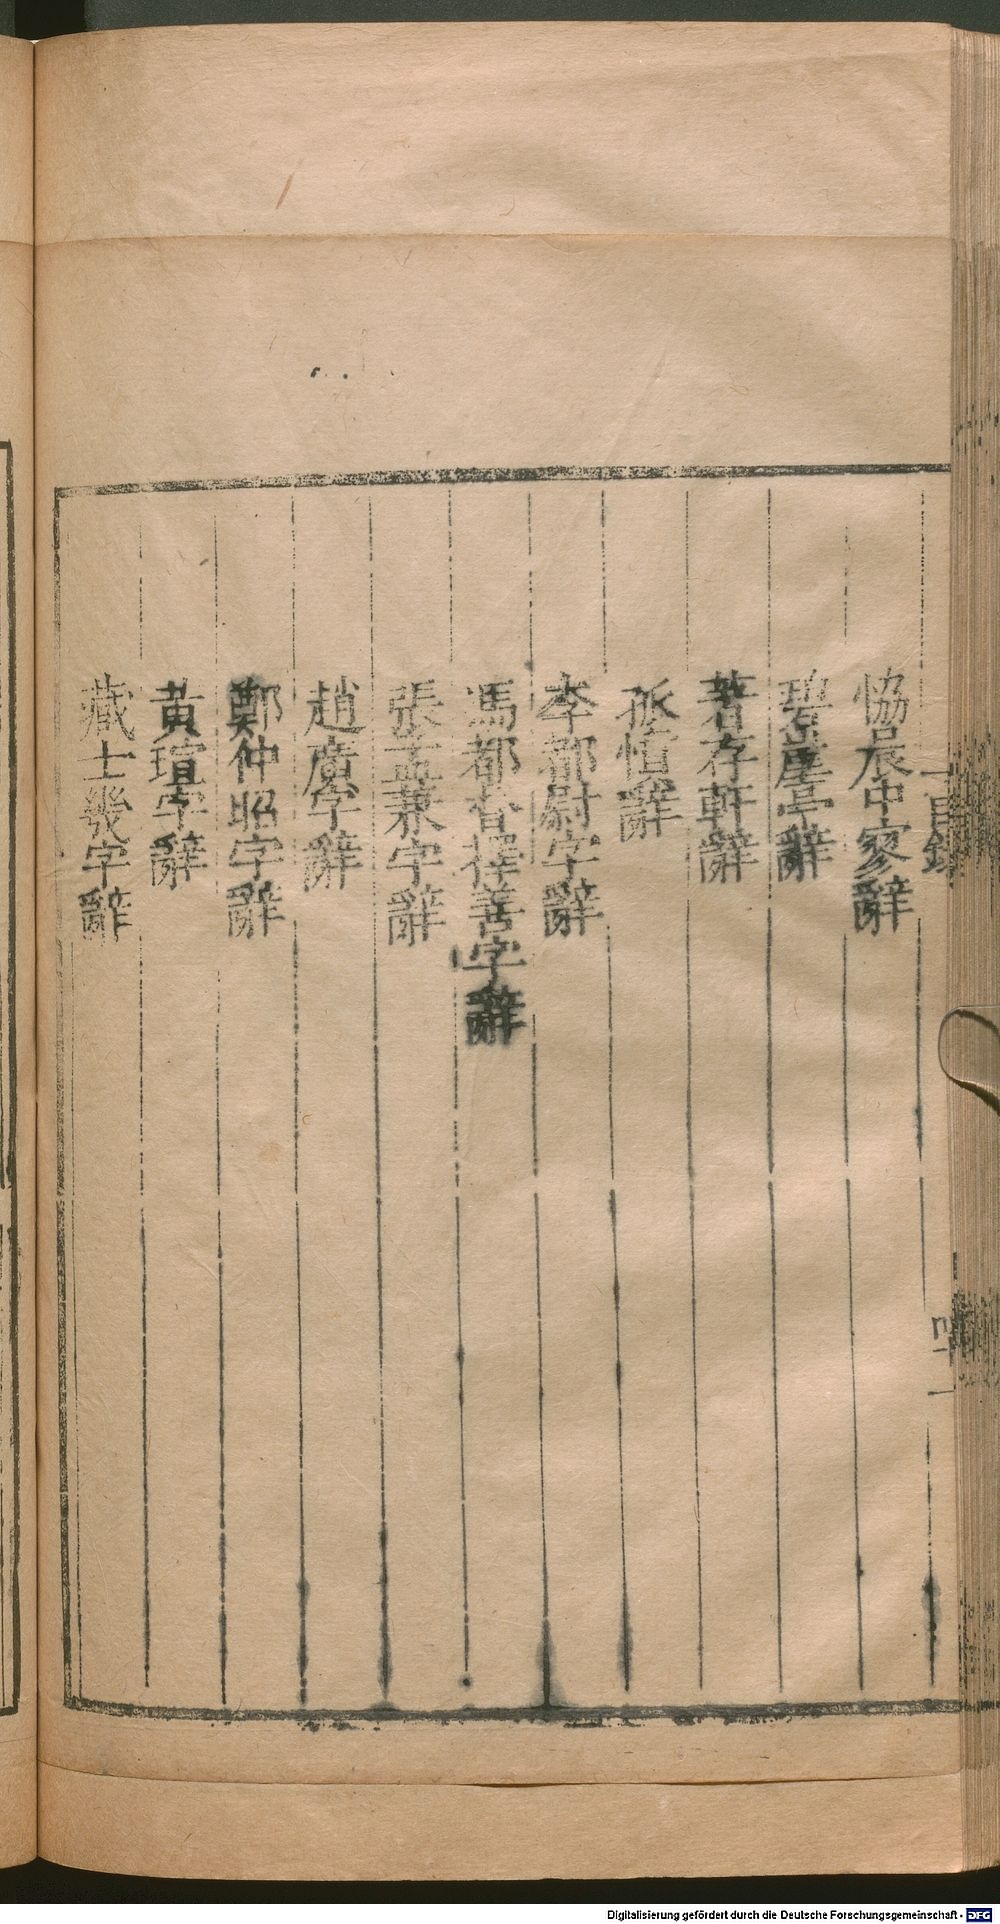 目錄
協晨中寥辭
碧崖亭辭
著存軒辭
孤愷辭
李都尉字辭
馮都督擇善字辭
張孟兼字辭
趙廣字辭
鄭仲昭字辭
黃瑄字辭
藏士幾字辭
Digitalisierung gefördert durch die Deutsche Forschungsgemeinschaft - DFG